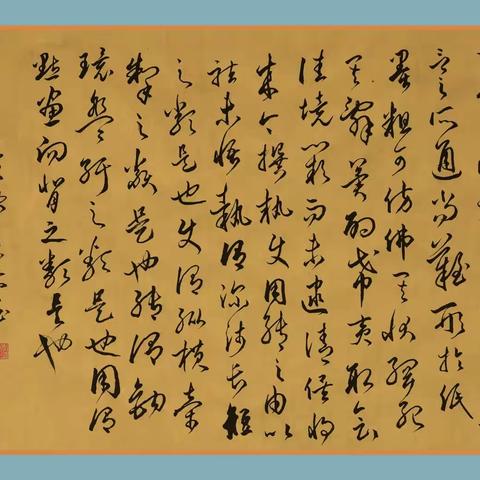 言之所通尚難形於紙
墨粗可仿佛其狀綱紀
其辭冀酌希夷取會
佳境闕而未逮請俟將
來今撰執使用轉之由以
祛未悟執謂深淺長短
之類是也使謂縱橫牽
掣之類是也轉謂鉤
環盤紆之類是也用謂
點畫向背之類是也